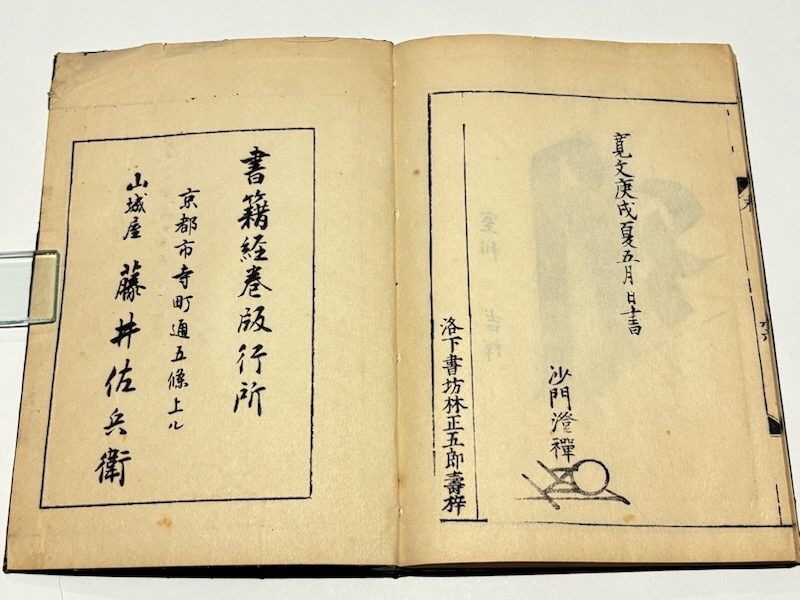 寛文庚戌夏五月日書
沙門澄禪
洛下書坊林正五郎壽梓
書籍経巻版行所
京都市寺町通五條上ル
山城屋 藤井佐兵衛